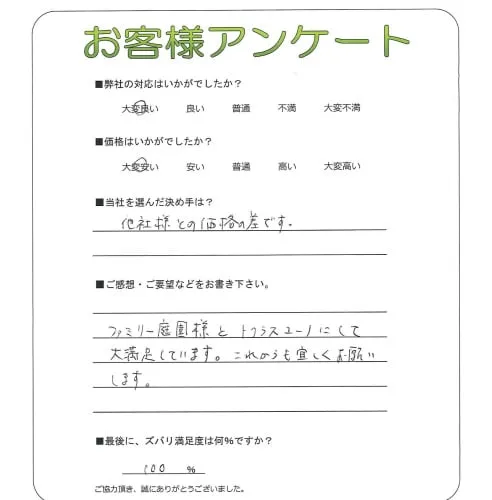 お客様アンケート
■弊社の対応はいかがでしたか？
大変良い 良い 普通 不満 大変不満
■価格はいかがでしたか？
大変安い 安い 普通 高い 大変高い
■当社を選んだ決め手は？
他社様との価格の差です。
■ご感想・ご要望などをお書き下さい。
ファミリー庭園様とトクラスユーノにして
大満足しています。これからも宜しくお願い
します。
■最後に、ズバリ満足度は何%ですか？
100 %
ご協力頂き、誠にありがとうございました。